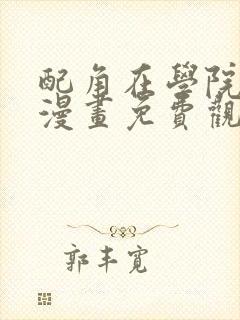 配角在學院
漫畫免費觀
郭丰寬